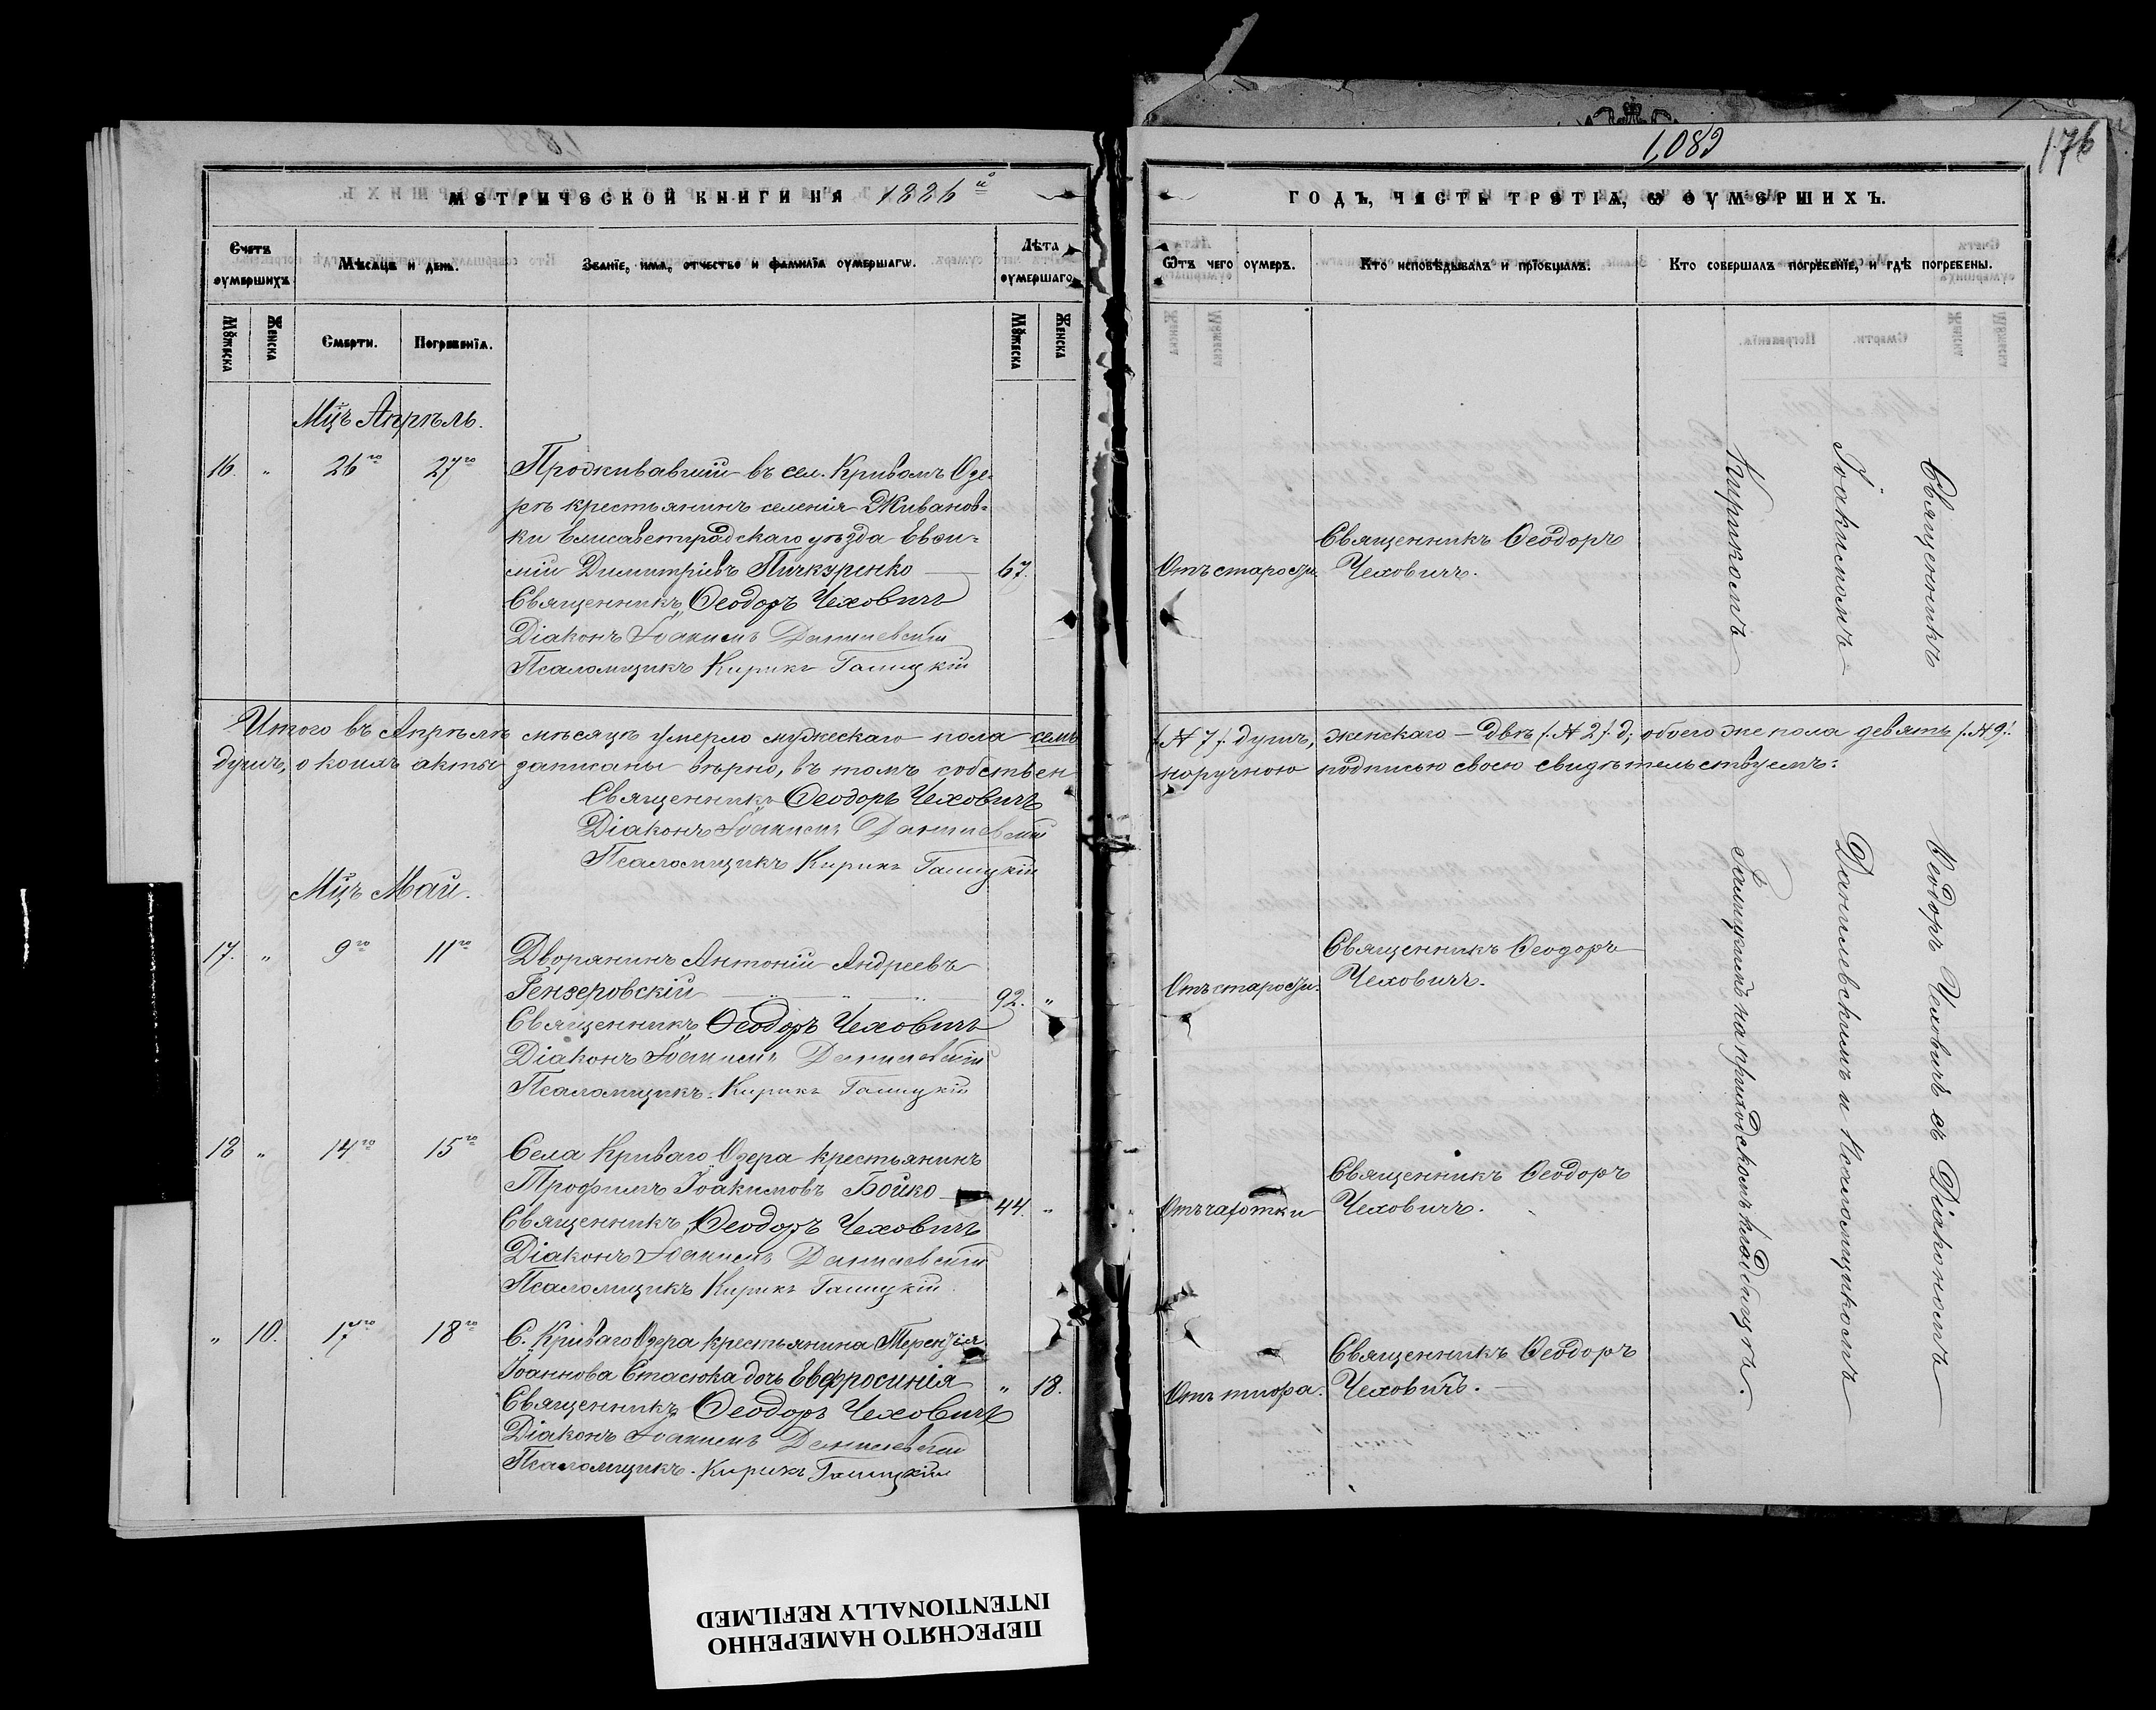 1,089
176
МЕТРИЧЕСКОЙ КНИГИ НА 1886й
ГОДЪ, ЧАСТЬ ТРЕТІѦ, Ѡ ОУМЕРШИХЪ.
Счетъ оумершихъ
Мѣсѧцъ и день.
Званїе, имѧ, отчество и фамилїѧ оумершагѡ.
Лѣта оумершаго
Ѿтъ чего оумеръ.
Кто исповѣдывалъ и прїобщалъ.
Кто совершалъ погребенїе, и гдѣ погребены.
Мꙋжеска
Женска
Смерти.
Погребенїѧ.
Мꙋжеска
Женска
Мцъ Апрѣль.
16. " 26го 27го Проживавшій въ сел. Кривомъ Озе-
рѣ крестьянинъ селенія Живанов-
ки Елисаветградскаго уѣзда Евѳи-
мій Димитріевъ Пичкуренко 67.
Священникъ Ѳеодоръ Чеховичъ
Діаконъ Іоакимъ Данилевскій
Псаломщикъ Кирикъ Галицкій
Отъ старости.
Священникъ Ѳеодоръ
Чеховичъ.
Итого въ Апрѣлѣ мѣсяцѣ умерло мужескаго пола семь /.№ 7/. душъ, женскаго — двѣ /.№ 2/. д; обоего же пола девять /.№ 9/.
душъ, о коихъ акты записаны вѣрно, въ томъ собствен
норучною подписью своею свидѣтельствуемъ:
Священникъ Ѳеодоръ Чеховичъ
Діаконъ Іоакимъ Данилевскій
Псаломщикъ Кирикъ Галицкій
Мцъ Май.
17. " 9го 11го Дворянинъ Антоній Андреевъ
Гензеровскій 92. "
Священникъ Ѳеодоръ Чеховичъ
Діаконъ Іоакимъ Данилевскій
Псаломщикъ Кирикъ Галицкій
Отъ старости.
Священникъ Ѳеодоръ
Чеховичъ.
18 " 14го 15го Села Криваго Озера крестьянинъ
Трофимъ Іоакимовъ Бойко 44. "
Священникъ Ѳеодоръ Чеховичъ
Діаконъ Іоакимъ Данилевскій
Псаломщикъ Кирикъ Галицкій
Отъ чахотки
Священникъ Ѳеодоръ
Чеховичъ.
" 10. 17го 18го С. Криваго Озера крестьянина Терентія
Іоаннова Стасюка дочь Евфросинія " 18.
Священникъ Ѳеодоръ Чеховичъ
Діаконъ Іоакимъ Данилевскій
Псаломщикъ Кирикъ Галицкій
Отъ тифа.
Священникъ Ѳеодоръ
Чеховичъ.
Священникъ Ѳеодоръ Чеховичъ съ Діакономъ
Іоакимомъ Данилевскимъ и Псаломщикомъ
Кирикомъ Галицкимъ на приходскомъ кладбищѣ.
ПЕРЕСНЯТО НАМЕРЕННО
INTENTIONALLY REFILMED